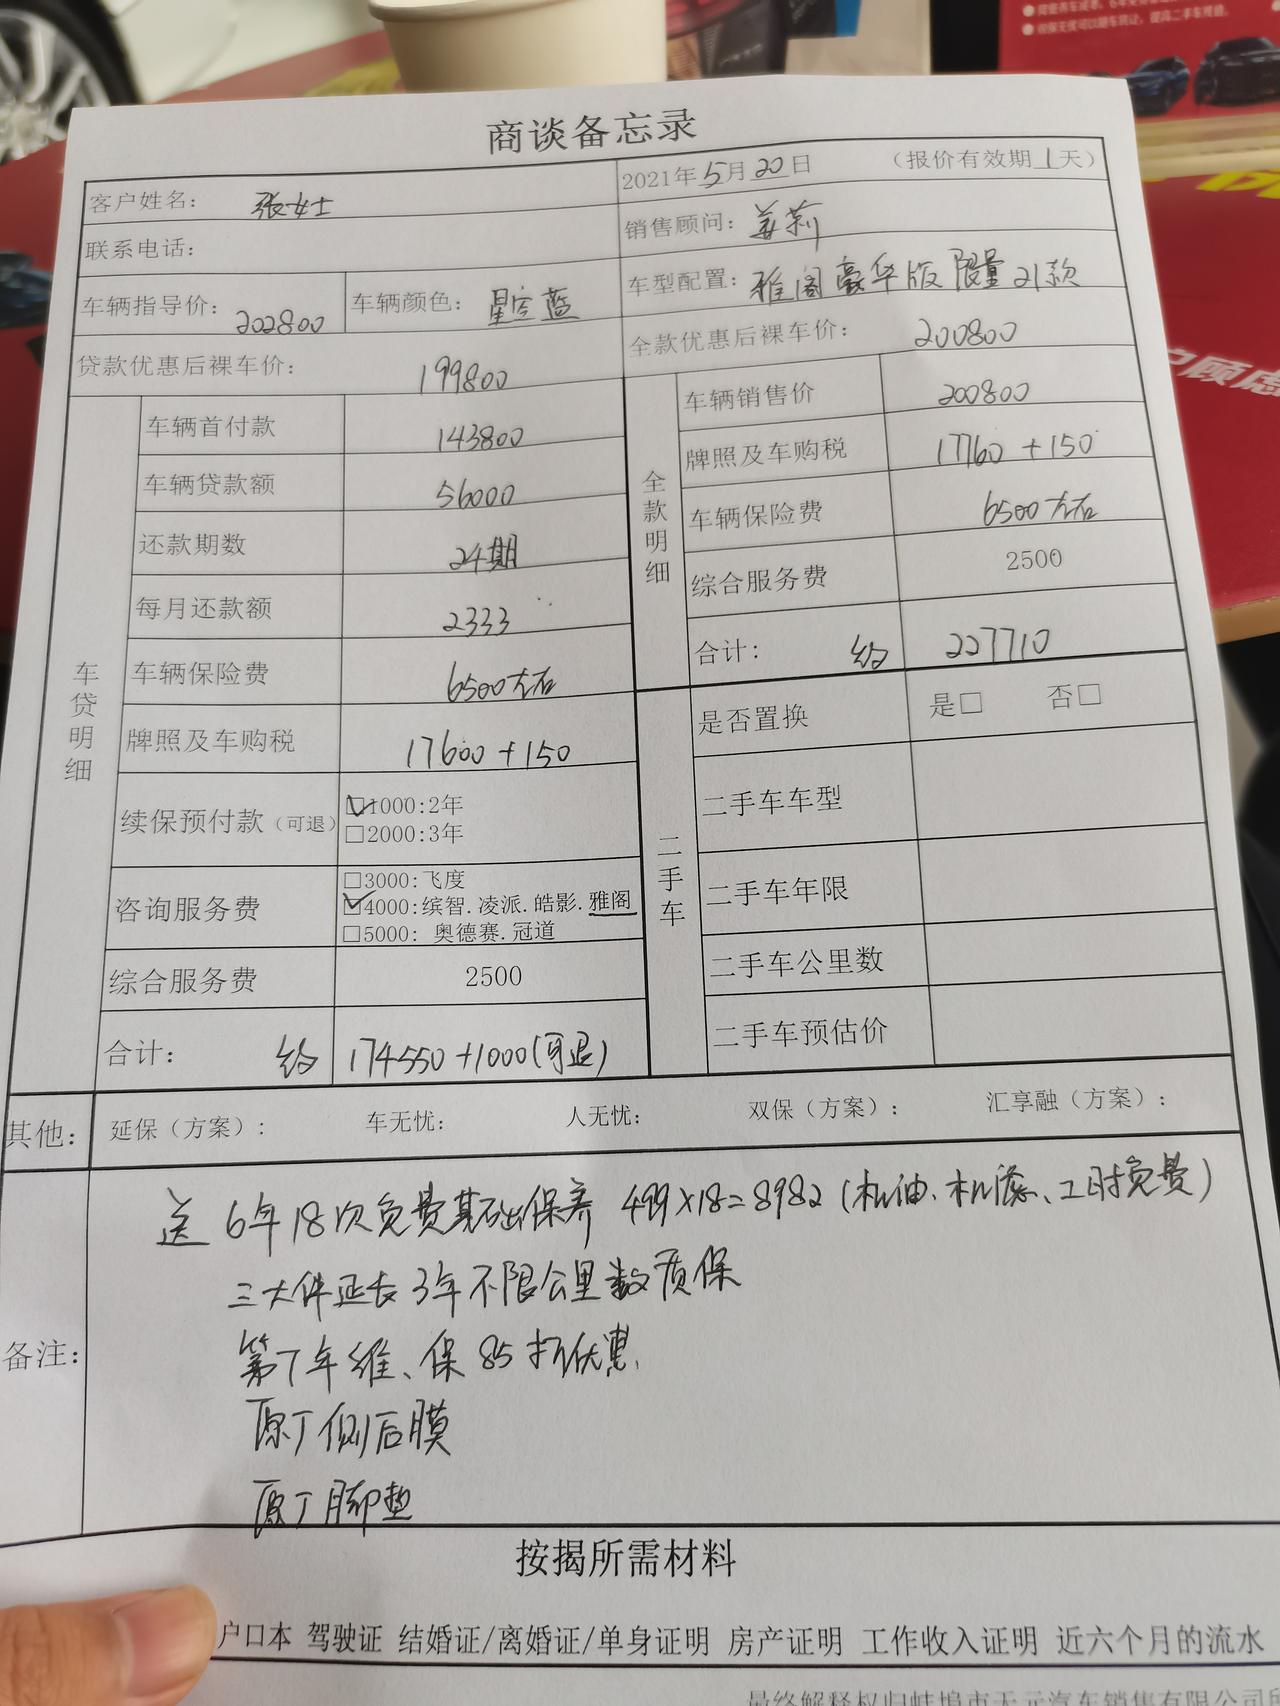 双保无忧可以随车转让,提高二手车残值。
顾虑
商谈备忘录
客户姓名: 张女士
2021年5月20日 (报价有效期1天)
联系电话:
销售顾问: 姜莉
车辆指导价: 202800 车辆颜色: 星空蓝
车型配置: 雅阁豪华版 限量 21款
贷款优惠后裸车价: 199800
全款优惠后裸车价: 200800
车贷明细
车辆首付款 143800
车辆贷款额 56000
还款期数 24期
每月还款额 2333
车辆保险费 6500左右
牌照及车购税 17600+150
续保预付款(可退) ☑1000:2年
□2000:3年
咨询服务费 □3000:飞度
☑4000:缤智.凌派.皓影.雅阁
□5000: 奥德赛.冠道
综合服务费 2500
合计: 约 174550+1000(可退)
全款明细
车辆销售价 200800
牌照及车购税 17760+150
车辆保险费 6500左右
综合服务费 2500
合计: 约 227710
二手车
是否置换 是□ 否□
二手车车型
二手车年限
二手车公里数
二手车预估价
其他: 延保(方案): 车无忧: 人无忧: 双保(方案): 汇享融(方案):
备注:
送 6年18次免费基础保养 499×18=8982(机油、机滤、工时免费)
三大件延长3年不限公里数质保
第7年维、保85折优惠
原厂侧后膜
原厂脚垫
按揭所需材料
户口本 驾驶证 结婚证/离婚证/单身证明 房产证明 工作收入证明 近六个月的流水
最终解释权归蚌埠市天元汽车销售有限公司